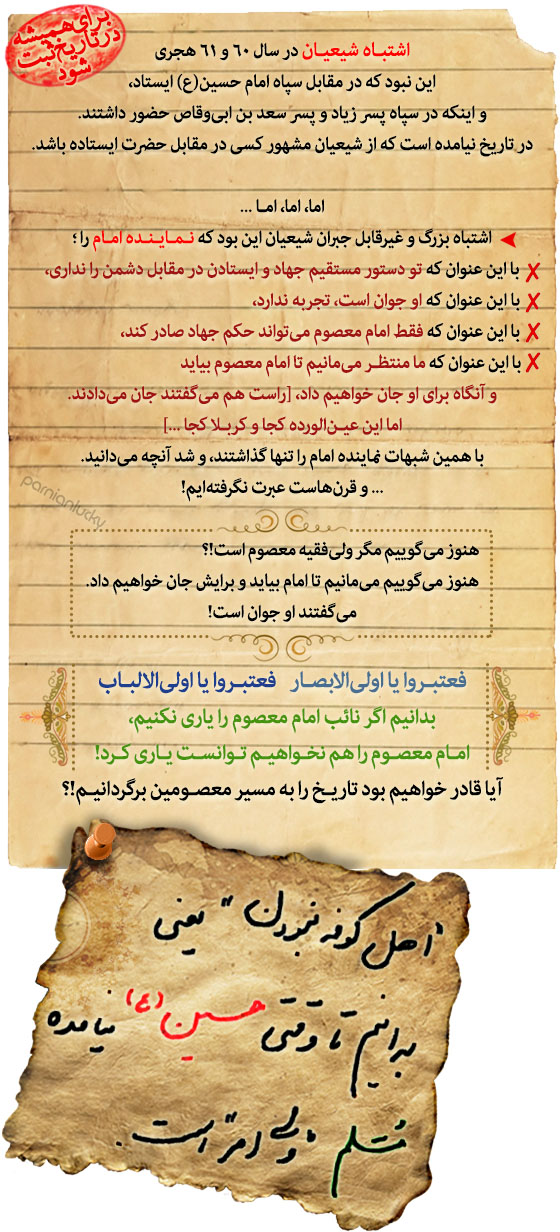 برای همیشه
در تاریخ ثبت
شود
اشتباه شیعیان در سال ۶۰ و ۶۱ هجری
این نبود که در مقابل سپاه امام حسین(ع) ایستاد،
و اینکه در سپاه پسر زیاد و پسر سعد بن ابی‌وقاص حضور داشتند.
در تاریخ نیامده است که از شیعیان مشهور کسی در مقابل حضرت ایستاده باشد.
اما، اما، اما ...
اشتباه بزرگ و غیرقابل جبران شیعیان این بود که نـمـایـنـده امـام را ؛
✗ با این عنوان که تو دستور مستقیم جهاد و ایستادن در مقابل دشمن را نداری،
✗ با این عنوان که او جوان است، تجربه ندارد،
✗ با این عنوان که فقط امام معصوم می‌تواند حکم جهاد صادر کند،
✗ با این عنوان که ما منتظر می‌مانیم تا امام معصوم بیاید
و آنگاه برای او جان خواهیم داد، [راست هم می‌گفتند جان می‌دادند.
اما این عین‌الورده کجا و کربلا کجا ...]
با همین شبهات نماینده امام را تنها گذاشتند، و شد آنچه می‌دانید.
... و قرن‌هاست عبرت نگرفته‌ایم!
parnianlucky
هنوز می‌گوییم مگر ولی‌فقیه معصوم است!؟
هنوز می‌گوییم می‌مانیم تا امام بیاید و برایش جان خواهیم داد.
می‌گفتند او جوان است!
فعتبروا یا اولی‌الابصار فعتبروا یا اولی‌الالباب
بدانیم اگر نائب امام معصوم را یاری نکنیم،
امام معصوم را هم نخواهیم توانست یاری کرد!
آیا قادر خواهیم بود تاریخ را به مسیر معصومین برگردانیم!؟
"اهل کوفه نبودن" یعنی
بدانیم تا وقتی حسین(ع) نیامده
مُسْلم "ولی امر" است.